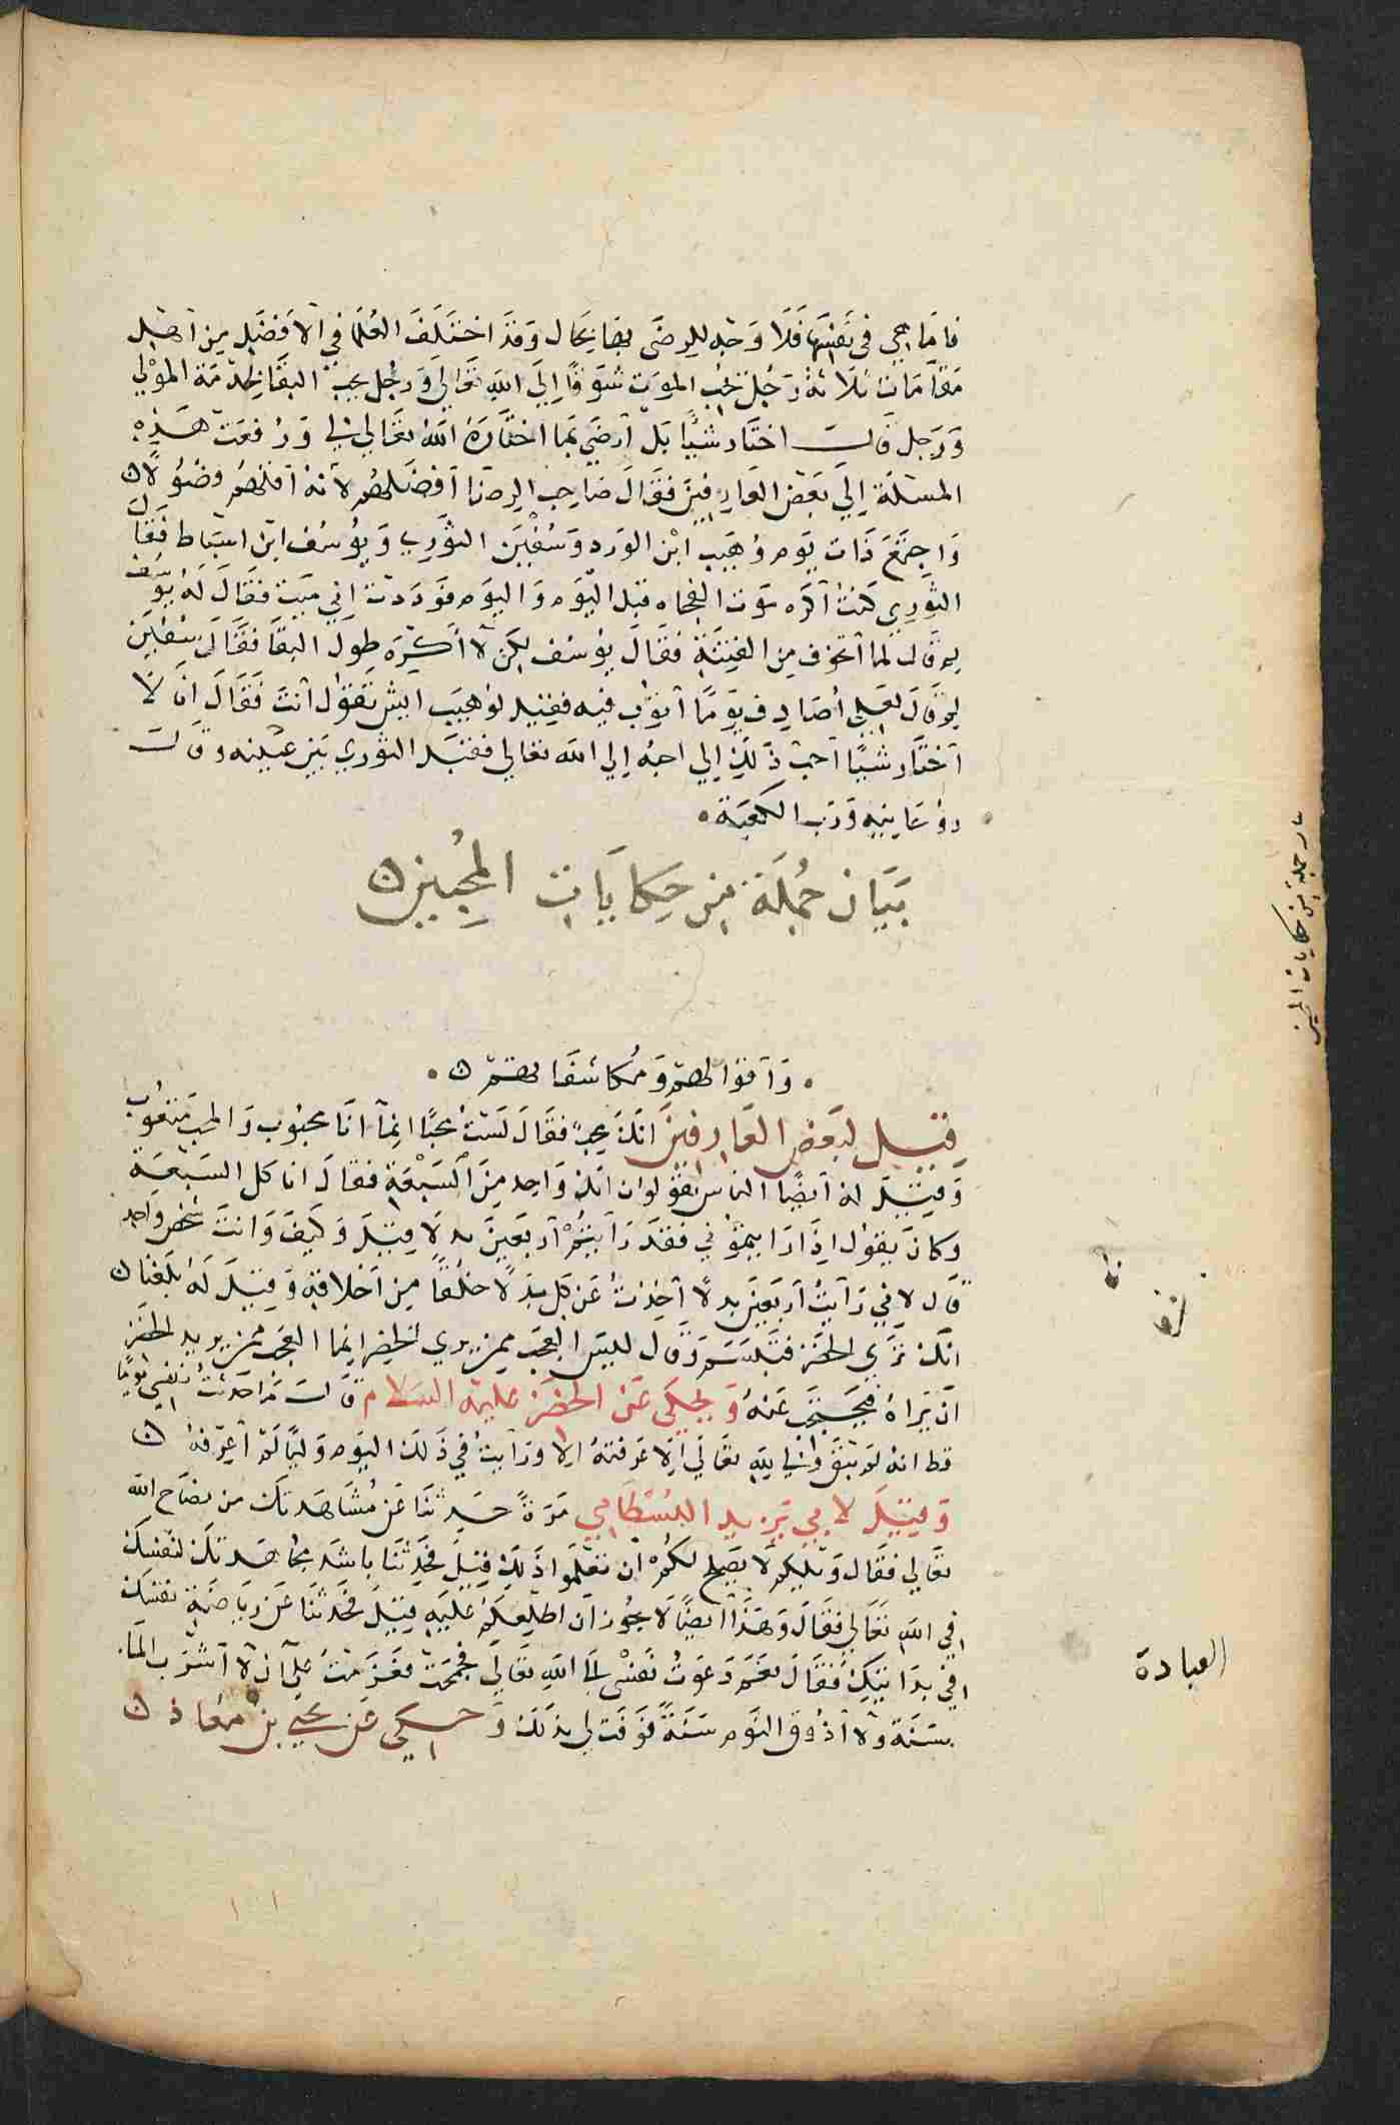 فاما هي في نفسها فلا وجه للرضى بها بحال وقد اختلف العلما في الافضل من اهل
مقامات ثلاثة رجل يحب الموت شوقا الي الله تعالي ورجل يحب البقا لخدمة المولي
ورجل قال لا اختار شيًا بل ارضي بما اختاره الله تعالي لي ورفعت هذه
المسئلة الي بعض العارفين فقال صاحب الرضا افضلهم لانه اقلهم فضولا
واجتمع ذات يوم وهيب ابن الورد وسفين الثوري ويوسف ابن اسباط فقال
الثوري كنت اكره موت الفجاه قبل اليوم واليوم فوددت اني ميت فقال له يوسف
لم قال لما اتخوف من الفتنة فقال يوسف لكن لا اكره طول البقا فقال سفين
لم قال لعلي اصادف يوما اتوب فيه فقيل لوهيب ايش تقول انت فقال انا لا
اختار شيًا احب ذلك الي احبه الي الله تعالي فقبل الثوري بين عينيه وقال
روحانية ورب الكعبة
بيان جملة من حكايات المحبين
واقوالهم ومكاشفاتهم
قيل لبعض العارفين انك محب فقال لست محبا انما انا محبوب والمحب متعوب
وقيل له ايضا الناس يقولون انك واحد من السبعة فقال انا كل السبعة
وكان يقول اذا رايتموني فقد رايتم اربعين بدلا قيل وكيف وانت شخص واحد
قال لاني رايت اربعين بدلا اخذت عن كل بدل خلقا من اخلاقه وقيل له بلغنا
انك تري الخضر فتبسم وقال ليس العجب ممن يري الخضر انما العجب ممن يريد الخضر
ان يراه فيحتجب عنه ويحكى عن الخضر عليه السلام قال ما حدثت نفسي يوما
قط انه لم يبق ولي لله تعالي الا عرفته الا ورايت في ذلك اليوم وليا لم اعرفه
وقيل لابي يزيد البسطامي مرة حدثنا عن مشاهدتك من الله
تعالي فقال ويلكم لا يصلح لكم ان تعلموا ذلك قيل فحدثنا باشد مجاهدتك لنفسك
في الله تعالي فقال وهذا ايضا لا يجوز ان اطلعكم عليه قيل فحدثنا عن رياضة نفسك
في بدايتك فقال نعم دعوت نفسي الى الله تعالي فجمحت فعزمت علي ان لا اشرب الما
سنة ولا اذوق النوم سنة فوفت لي بذلك وحكي عن يحيي بن معاذ
بيان جملة من حكايات المحبين
العبادة